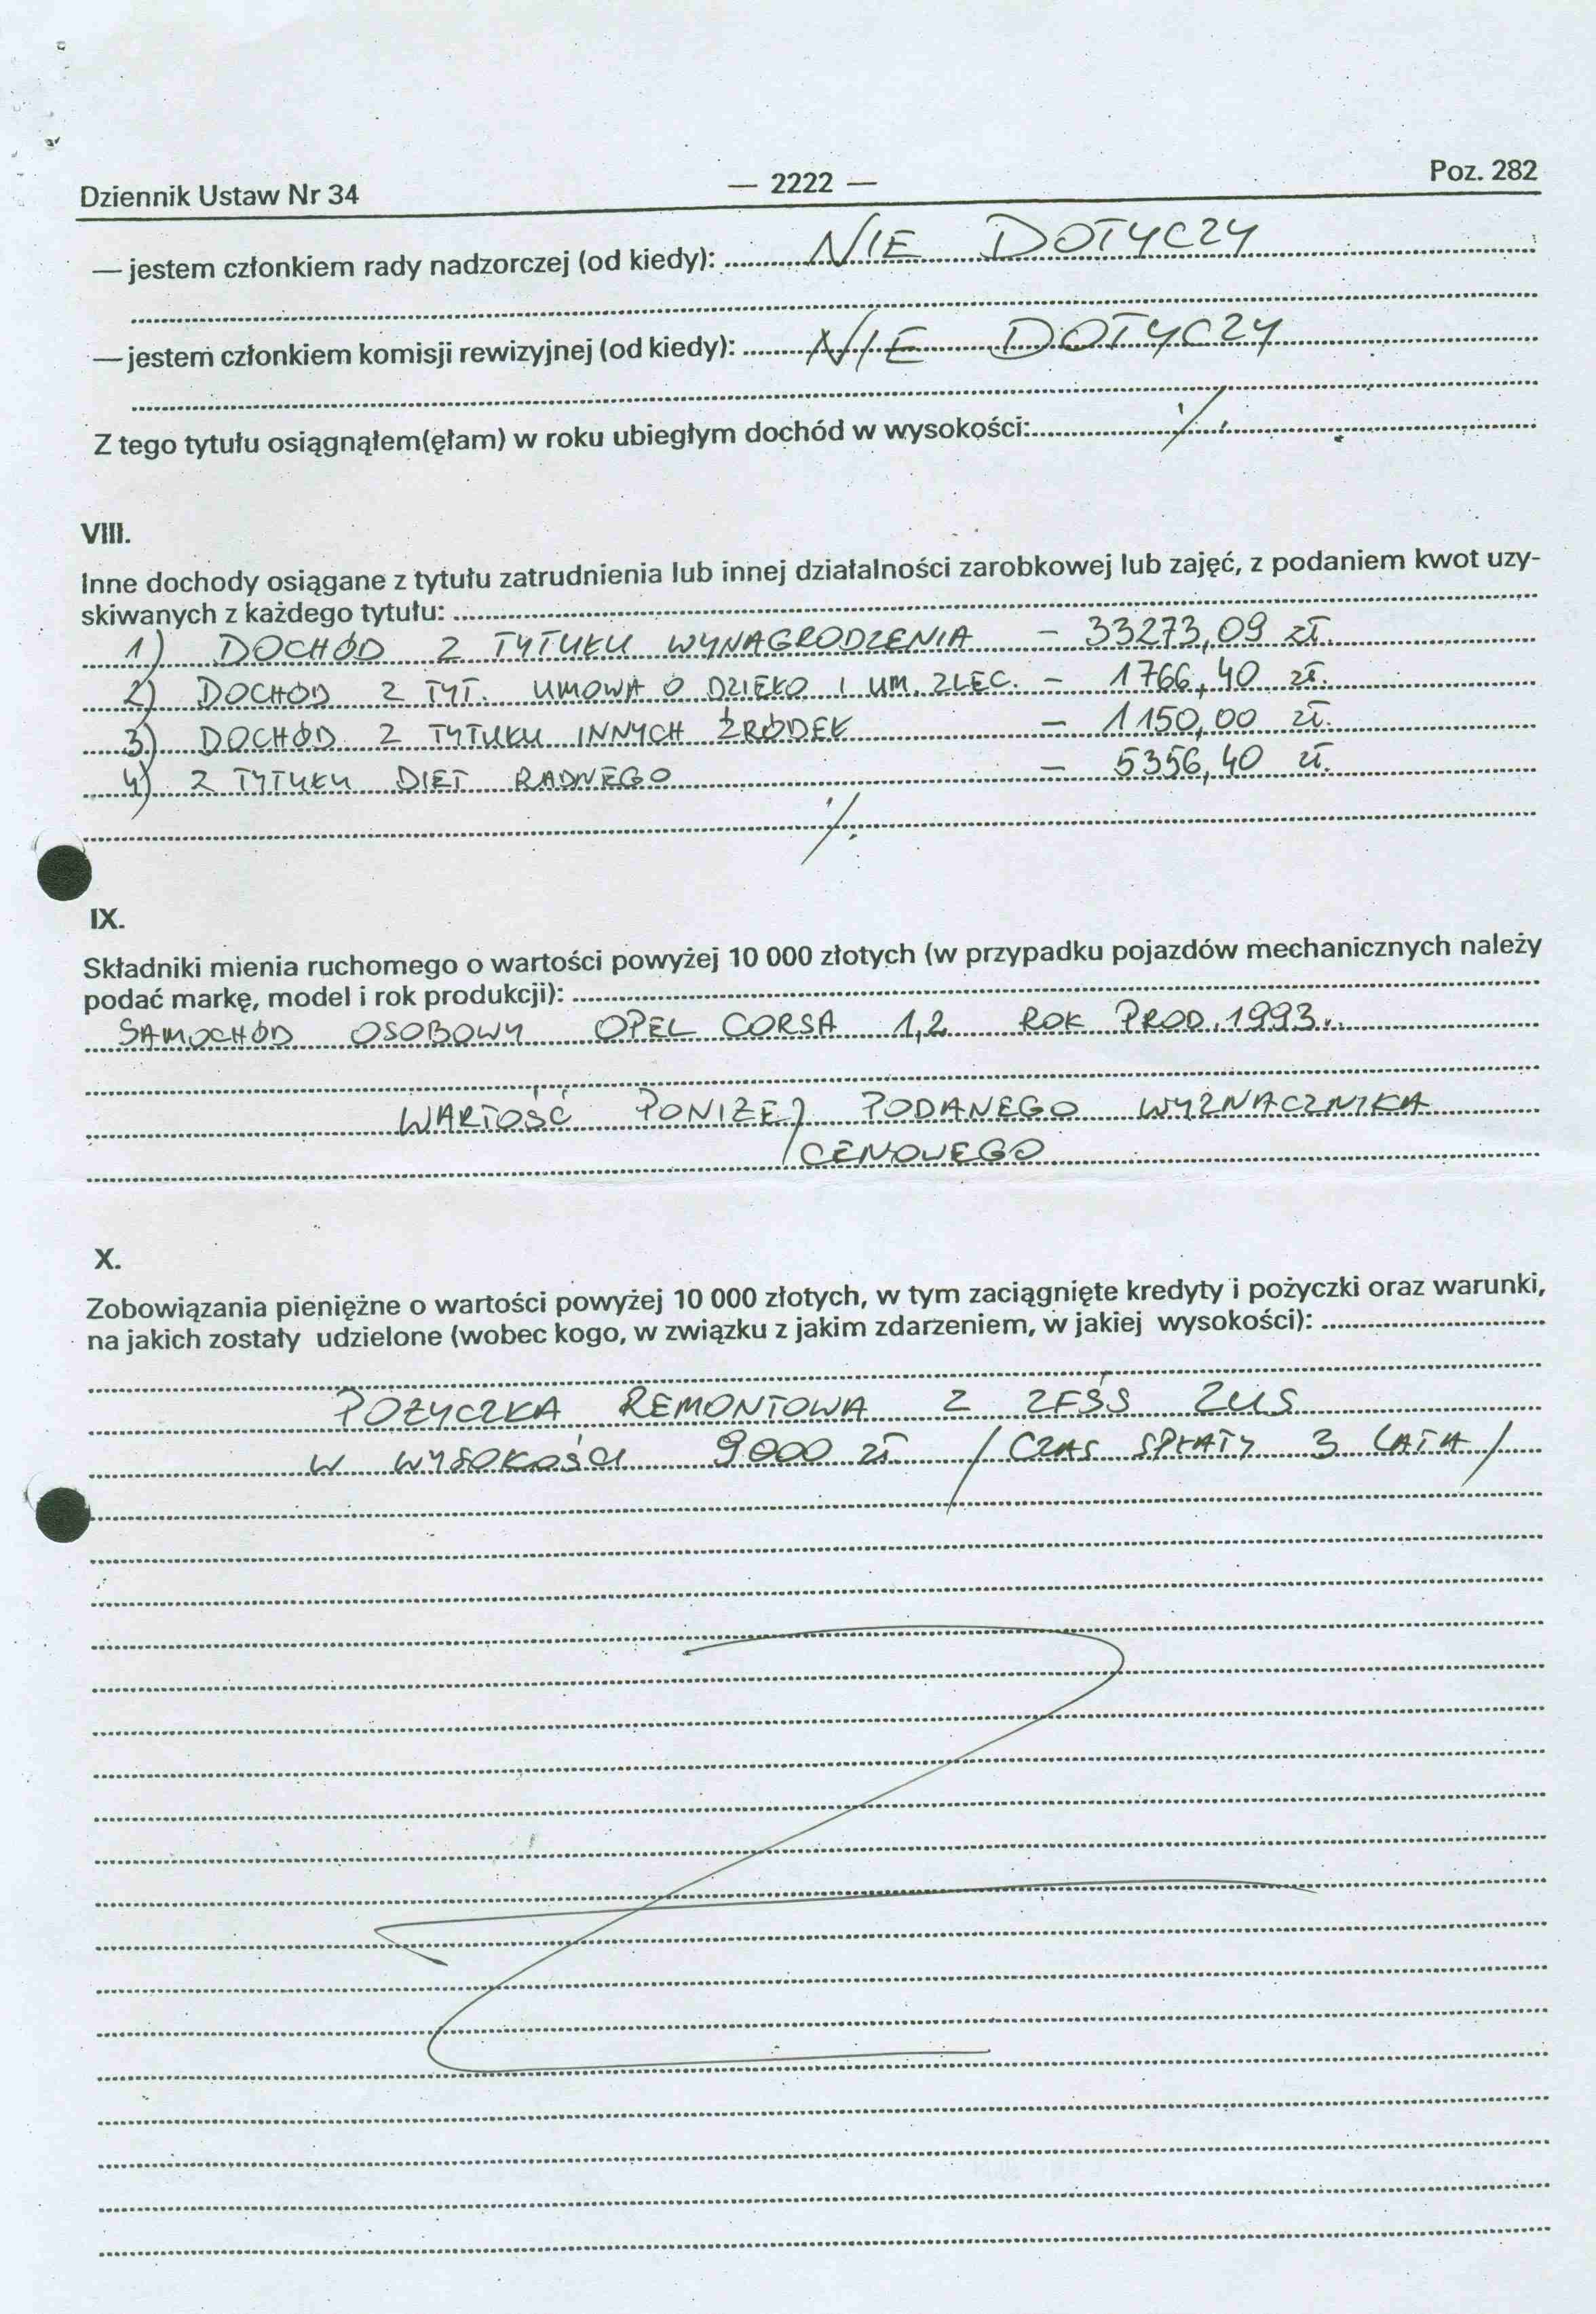 Dziennik Ustaw Nr 34 — 2222 — Poz. 282
— jestem członkiem rady nadzorczej (od kiedy): NIE DOTYCZY
— jestem członkiem komisji rewizyjnej (od kiedy): NIE DOTYCZY
Z tego tytułu osiągnąłem(ęłam) w roku ubiegłym dochód w wysokości:
VIII.
Inne dochody osiągane z tytułu zatrudnienia lub innej działalności zarobkowej lub zajęć, z podaniem kwot uzy-
skiwanych z każdego tytułu:
1) DOCHÓD Z TYTUŁU WYNAGRODZENIA – 33273,09 zł.
2) DOCHÓD Z TYT. UMOWA O DZIEŁO I UM. ZLEC. – 1766,40 zł.
3) DOCHÓD Z TYTUŁU INNYCH ŹRÓDEŁ – 1150,00 zł.
4) Z TYTUŁU DIET RADNEGO – 5356,40 zł.
IX.
Składniki mienia ruchomego o wartości powyżej 10 000 złotych (w przypadku pojazdów mechanicznych należy
podać markę, model i rok produkcji):
SAMOCHÓD OSOBOWY OPEL CORSA 1,2 ROK PROD. 1993r.
WARTOŚĆ PONIŻEJ PODANEGO WYZNACZNIKA
CENOWEGO
X.
Zobowiązania pieniężne o wartości powyżej 10 000 złotych, w tym zaciągnięte kredyty i pożyczki oraz warunki,
na jakich zostały udzielone (wobec kogo, w związku z jakim zdarzeniem, w jakiej wysokości):
POŻYCZKA REMONTOWA Z ZFŚS ZUS
W WYSOKOŚCI 9000 zł / CZAS SPŁATY 3 LATA /